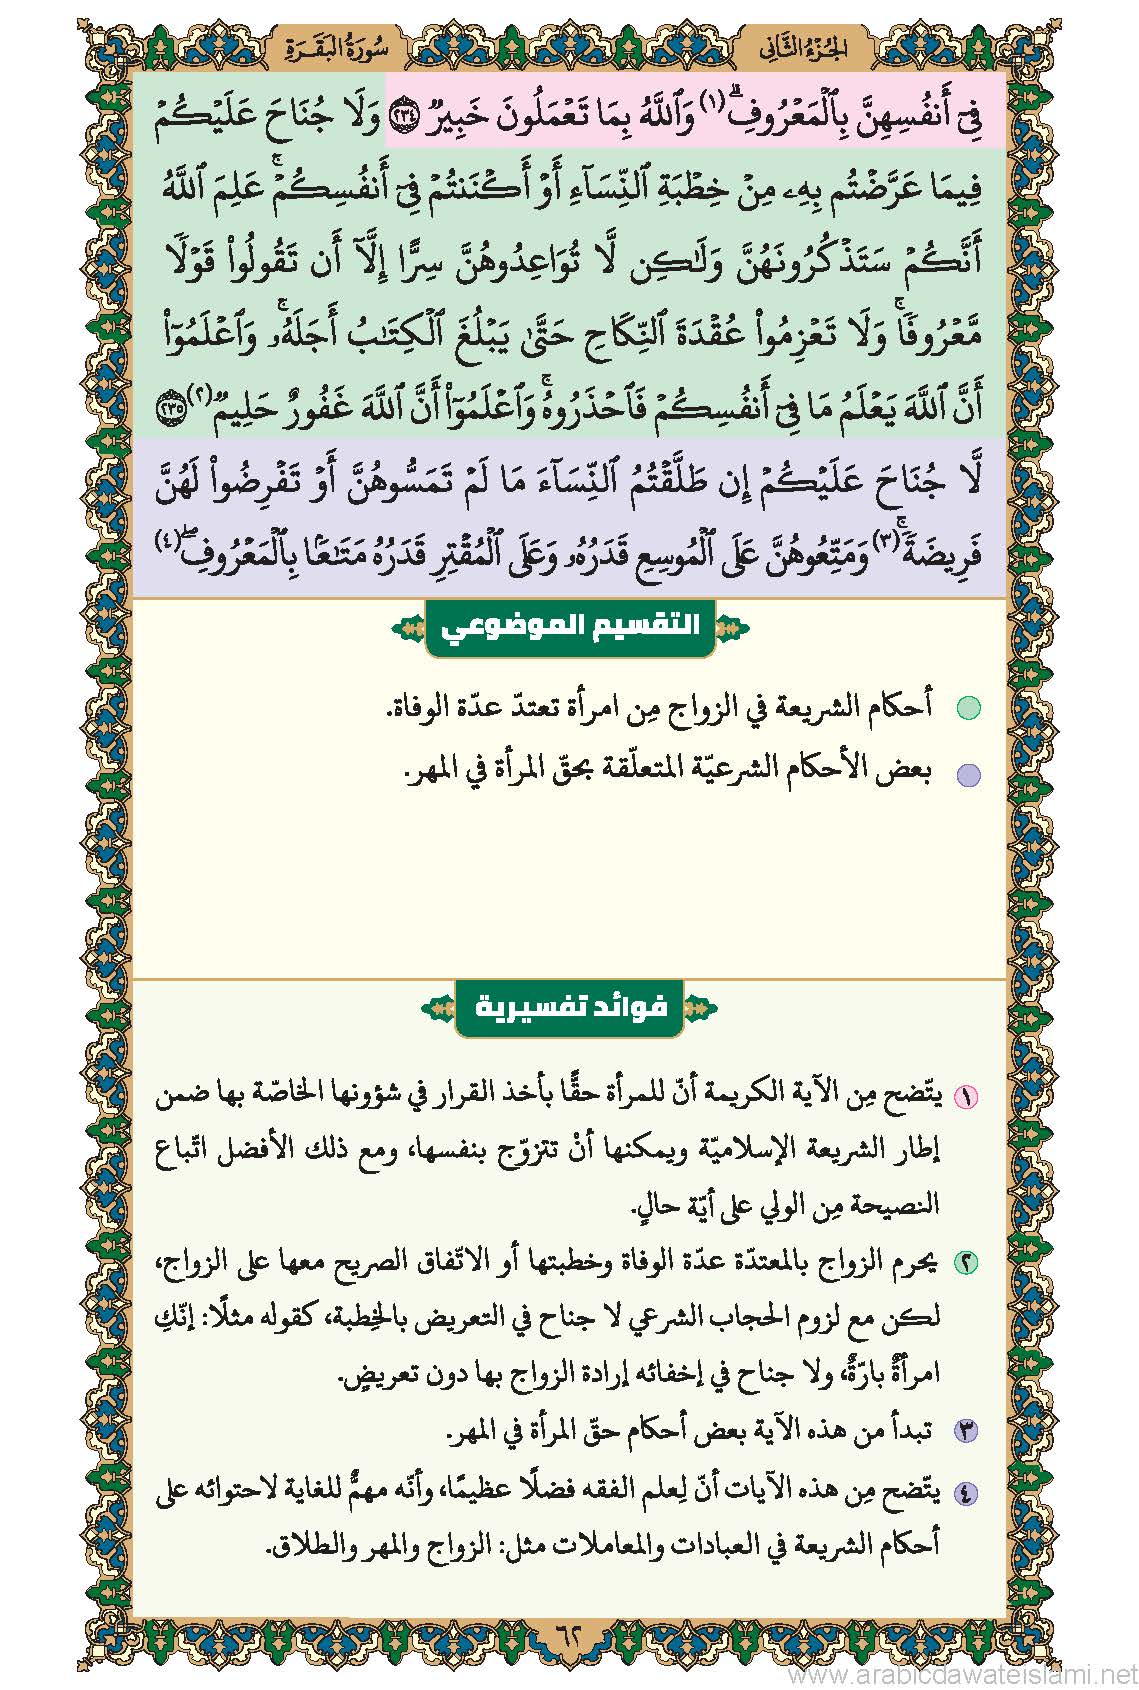 الجُزْءُ الثَّانِي
سُورَةُ البَقَرَةِ
فِيٓ أَنفُسِهِنَّ بِٱلۡمَعۡرُوفِۗ (١) وَٱللَّهُ بِمَا تَعۡمَلُونَ خَبِيرٞ ٢٣٤ وَلَا جُنَاحَ عَلَيۡكُمۡ
فِيمَا عَرَّضۡتُم بِهِۦ مِنۡ خِطۡبَةِ ٱلنِّسَآءِ أَوۡ أَكۡنَنتُمۡ فِيٓ أَنفُسِكُمۡۚ عَلِمَ ٱللَّهُ
أَنَّكُمۡ سَتَذۡكُرُونَهُنَّ وَلَٰكِن لَّا تُوَاعِدُوهُنَّ سِرًّا إِلَّآ أَن تَقُولُواْ قَوۡلٗا
مَّعۡرُوفٗاۚ وَلَا تَعۡزِمُواْ عُقۡدَةَ ٱلنِّكَاحِ حَتَّىٰ يَبۡلُغَ ٱلۡكِتَٰبُ أَجَلَهُۥۚ وَٱعۡلَمُوٓاْ
أَنَّ ٱللَّهَ يَعۡلَمُ مَا فِيٓ أَنفُسِكُمۡ فَٱحۡذَرُوهُۚ وَٱعۡلَمُوٓاْ أَنَّ ٱللَّهَ غَفُورٌ حَلِيمٞ (٢) ٢٣٥
لَّا جُنَاحَ عَلَيۡكُمۡ إِن طَلَّقۡتُمُ ٱلنِّسَآءَ مَا لَمۡ تَمَسُّوهُنَّ أَوۡ تَفۡرِضُواْ لَهُنَّ
فَرِيضَةٗۚ (٣) وَمَتِّعُوهُنَّ عَلَى ٱلۡمُوسِعِ قَدَرُهُۥ وَعَلَى ٱلۡمُقۡتِرِ قَدَرُهُۥ مَتَٰعَۢا بِٱلۡمَعۡرُوفِۖ (٤)
التقسيم الموضوعي
أحكام الشريعة في الزواج مِن امرأة تعتدّ عدّة الوفاة.
بعض الأحكام الشرعيّة المتعلّقة بحقّ المرأة في المهر.
فوائد تفسيرية
١ يتّضح مِن الآية الكريمة أنّ للمرأة حقًّا بأخذ القرار في شؤونها الخاصّة بها ضمن
إطار الشريعة الإسلاميّة ويمكنها أنْ تتزوّج بنفسها، ومع ذلك الأفضل اتّباع
النصيحة مِن الولي على أيّة حالٍ.
٢ يحرم الزواج بالمعتدّة عدّة الوفاة وخطبتها أو الاتّفاق الصريح معها على الزواج،
لكن مع لزوم الحجاب الشرعي لا جناح في التعريض بالخِطبة، كقوله مثلًا: إنّكِ
امرأةٌ بارّةٌ، ولا جناح في إخفائه إرادة الزواج بها دون تعريضٍ.
٣ تبدأ من هذه الآية بعض أحكام حقّ المرأة في المهر.
٤ يتّضح مِن هذه الآيات أنّ لِعلم الفقه فضلًا عظيمًا، وأنّه مهمٌّ للغاية لاحتوائه على
أحكام الشريعة في العبادات والمعاملات مثل: الزواج والمهر والطلاق.
٦٢
www.arabicdawateislami.net